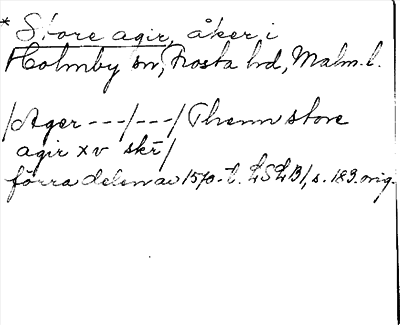 * Store agir, åker i
Holmby sn, Frosta hd, Malm. l.
/Ager ---/---/ Thenn store
agir xv skr/
förra delen av 1570-t. LSLB1, s. 183. orig.